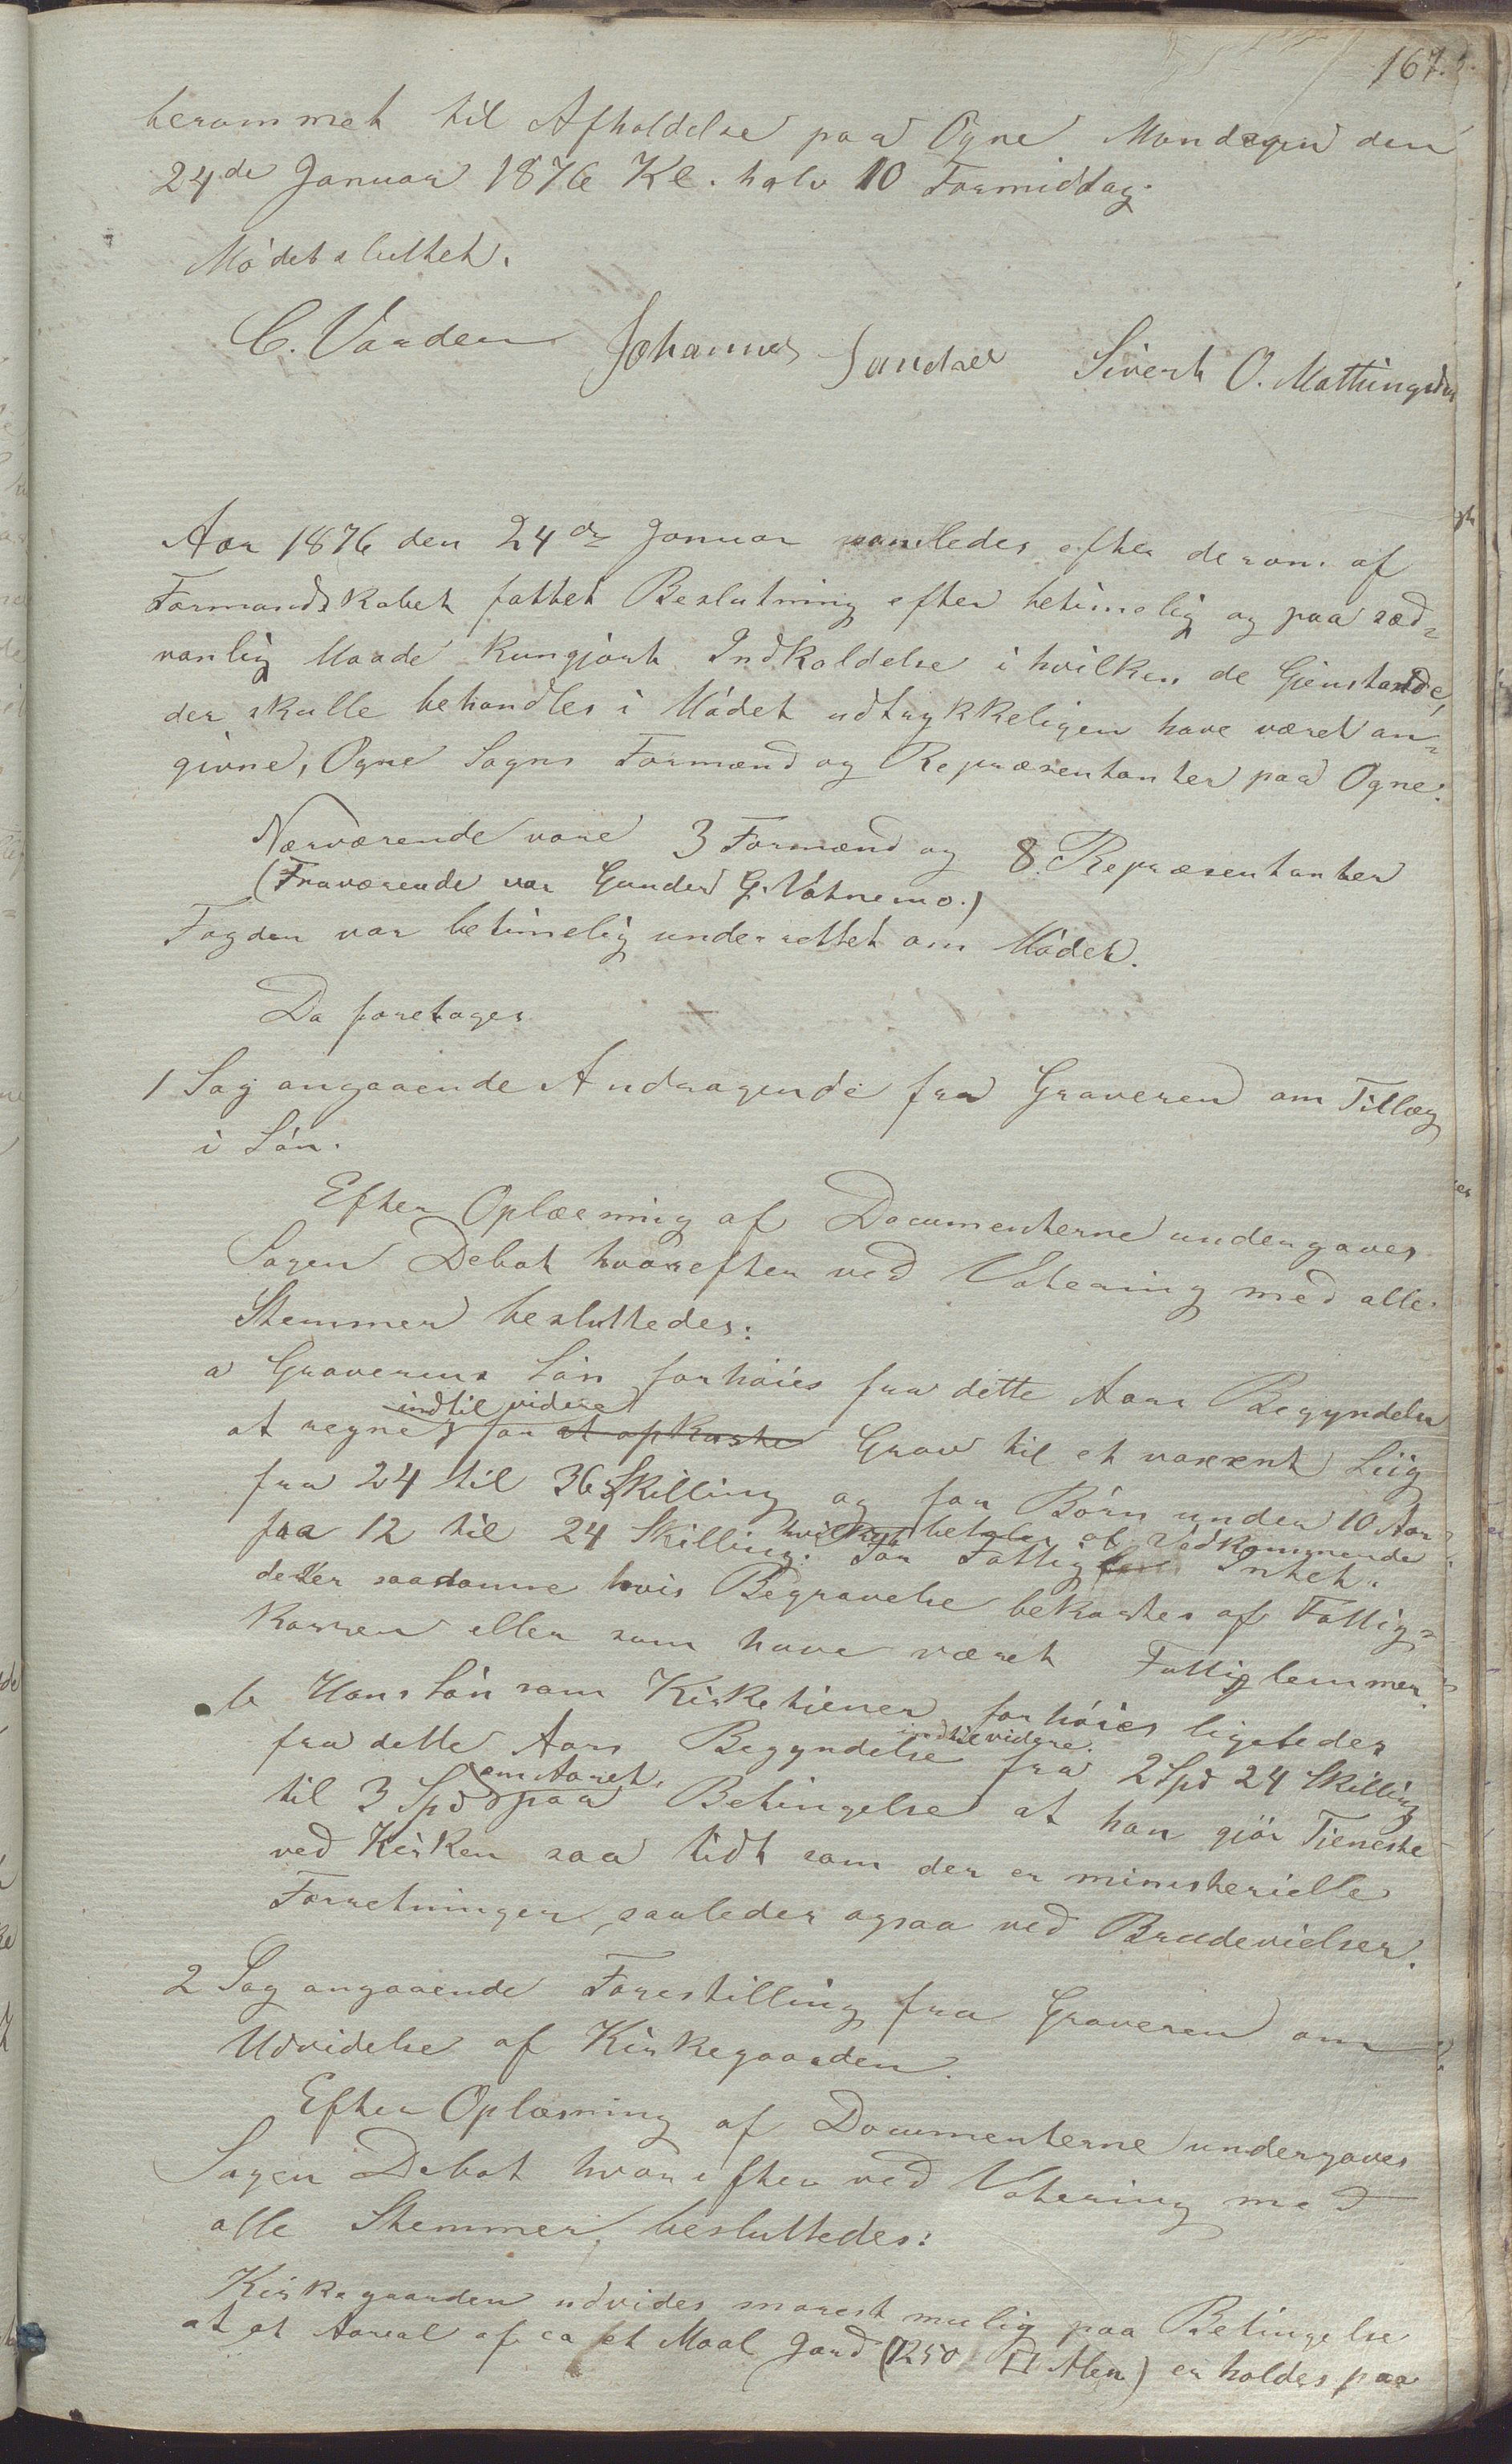 167.
berammet til Afholdelse paa Ogne Mandagen den
24de Januar 1876 Kl. halv 10 Formiddag.
Mödet sluttet.
C. Varden Johannes Sandve Sivert O. Mattingsdal
Aar 1876 den 24de Januar samledes efter derom af
Formandskabet fattet Beslutning efter betimelig og paa sæd=
vanlig Maade kungjort Indkaldelse i hvilken de Gjenstande,
der skulle behandles i Mödet udtrykkeligen have været an=
givne, Ogne Sogns Formænd og Repræsentanter paa Ogne.
Nærværende vare 3 Formænd og 8 Repræsentanter
(Fraværende var Gunder G. Vatnemo.)
Fogden var betimelig underrettet om Mödet.
Da foretoges
1 Sag angaaende Andragende fra Graveren om Tillæg
i Lön.
Efter Oplæsning af Documenterne undergaves
Sagen Debat hvorefter ved Votering med alle
Stemmer besluttedes:
a Graverens Lön forhöies fra dette Aars Begyndelse
indtil videre
at regne for at opkaste Grav til et voxent Liig
fra 24 til 36 Skilling og for Börn under 10 Aar
hvilket betales af Vedkommende
fra 12 til 24 Skilling. For Fattig Intet.
deller saadanne hvis Begravelse bekostes af Fattig=
kassen eller som have været Fattiglemmer.
b Hans Lön som Kirketjener forhöies ligeledes
indtil videre.
fra dette Aars Begyndelse fra 2 Spd 24 Skilling
om Aaret,
til 3 Spd paa Betingelse at han gjör Tjeneste
ved Kirken saa tidt som der er ministerielle
Forretninger, saaledes ogsaa ved Brudevielser.
2 Sag angaaende Forestilling fra Graveren om
Udvidelse af Kirkegaarden.
Efter Oplæsning af Documenterne undergaves
Sagen Debat hvorefter ved Votering med
alle Stemmer besluttedes:
Kirkegaarden udvides snarest mulig paa Betingelse
at et Areal af ca et Maal Jord (1250 □ Alen) erholdes paa